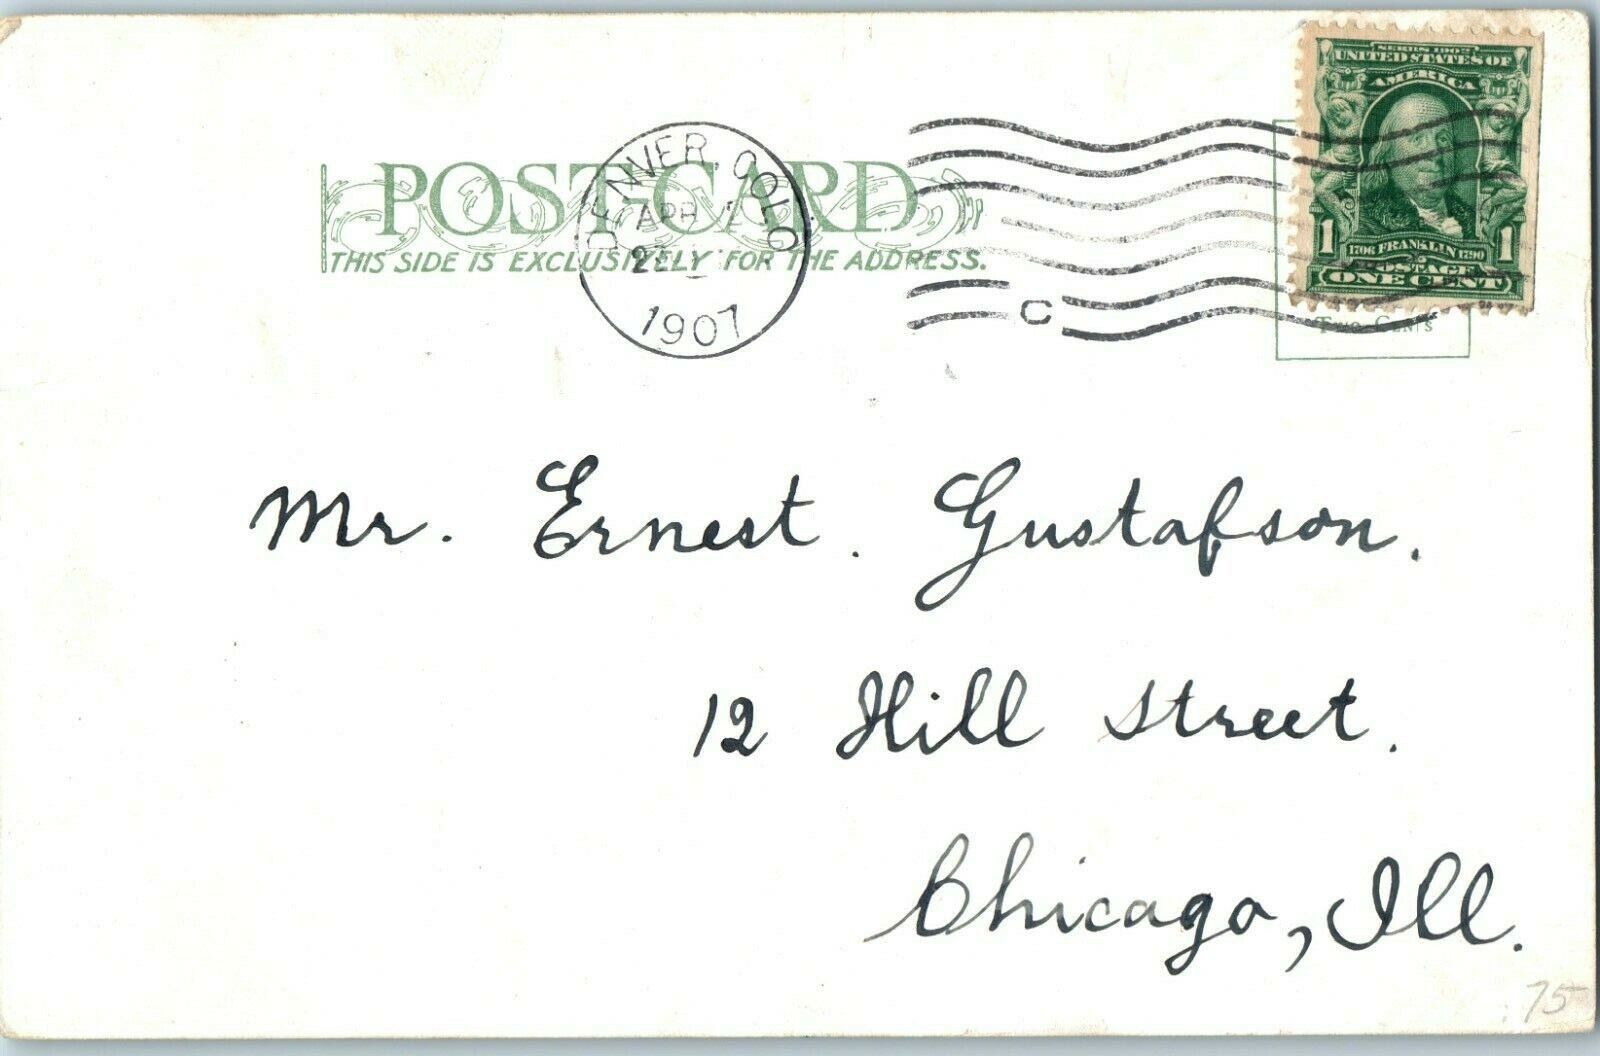 SERIES 1902
UNITED STATES OF
AMERICA
1 1706 FRANKLIN 1790 1
POSTAGE
ONE CENT
DENVER, COLO
APR
1907
C
POST CARD
THIS SIDE IS EXCLUSIVELY FOR THE ADDRESS.
Two Cents
Mr. Ernest. Gustafson.
12 Hill Street.
Chicago, Ill.
75